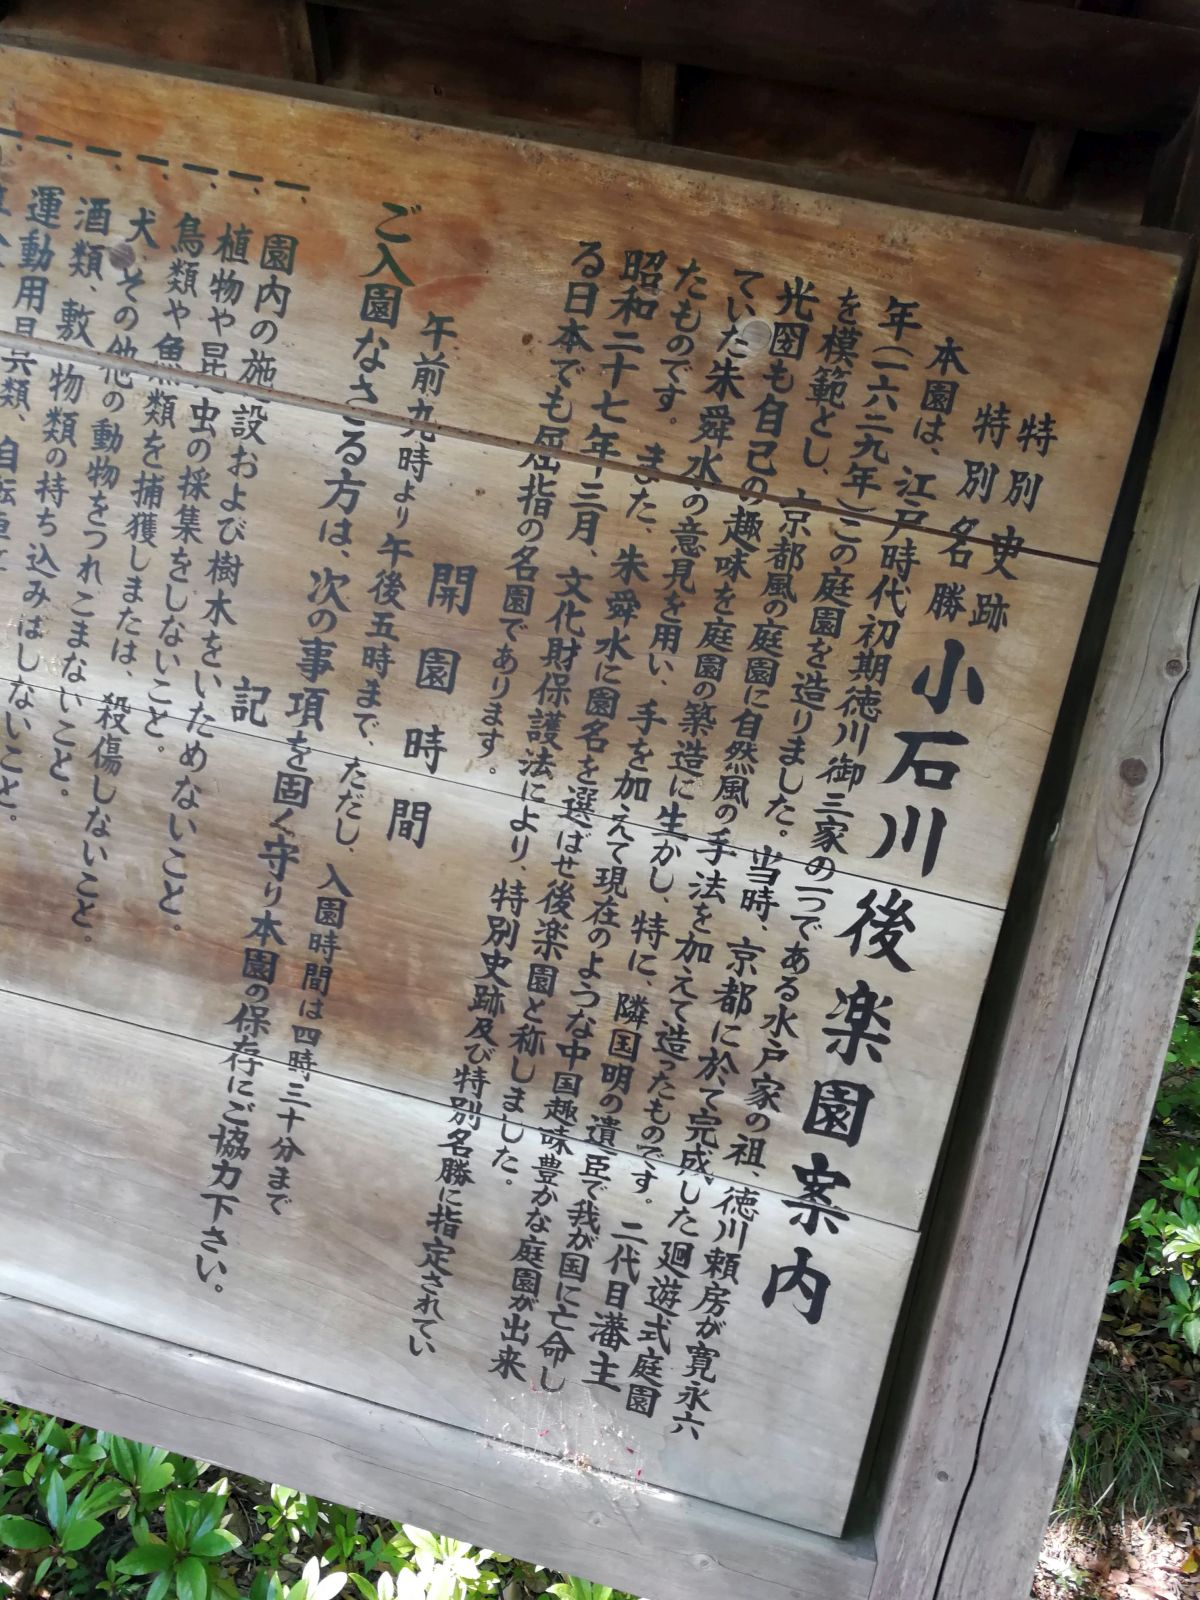 特別史跡
特別名勝
小石川後楽園案内
本園は、江戸時代初期徳川御三家の一つである水戸家の祖、徳川頼房が寛永六
年(一六二九年)この庭園を造りました。当時、京都に於て完成した廻遊式庭園
を模範とし、京都風の庭園に自然風の手法を加えて造ったものです。二代目藩主
光圀も自己の趣味を庭園の築造に生かし、特に、隣国明の遺臣で我が国に亡命し
ていた朱舜水の意見を用い、手を加えて現在のような中国趣味豊かな庭園が出来
たものです。また、朱舜水に園名を選ばせ後楽園と称しました。
昭和二十七年三月、文化財保護法により、特別史跡及び特別名勝に指定されてい
る日本でも屈指の名園であります。
開園時間
午前九時より午後五時まで、ただし、入園時間は四時三十分まで
ご入園なさる方は、次の事項を固く守り本園の保存にご協力下さい。
記
一、園内の施設および樹木をいためないこと。
一、植物や昆虫の採集をしないこと。
一、鳥類や魚類を捕獲しまたは、殺傷しないこと。
一、犬その他の動物をつれこまないこと。
一、酒類、敷物類の持ち込みはしないこと。
一、運動用具類、自転車